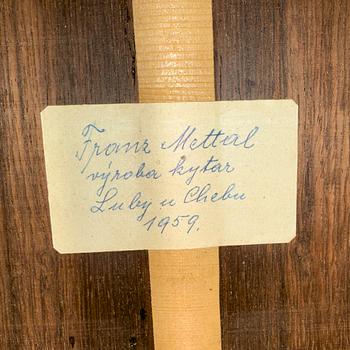 Franz Mettal
výroba kytar
Luby u Chebu
1959.